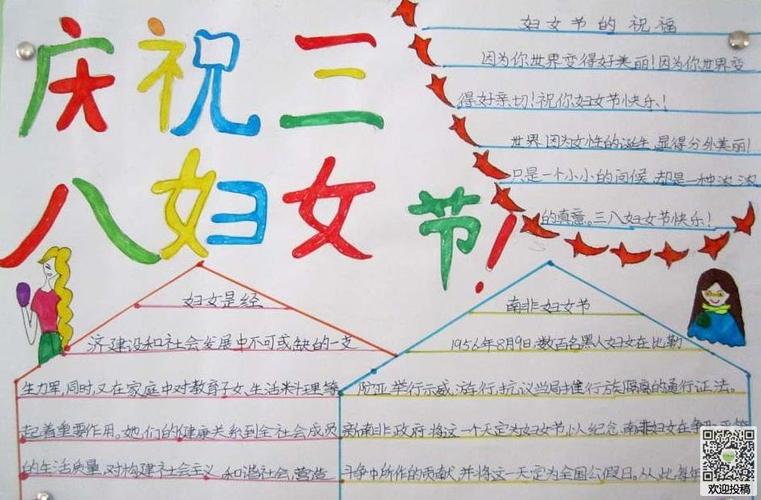 庆祝三
八妇女节!
妇女节的祝福
因为你世界变得好美丽!因为你世界变
得好亲切!祝你妇女节快乐!
世界因为女性的诞生,显得分外美丽!
只是一个小小的问候,却是一种浓浓
的真意。三八妇女节快乐!
妇女是经
济建设和社会发展中不可或缺的一支
生力军,同时,又在家庭中对教育子女、生活料理等
起着重要作用。她们的健康关系到全社会成员
的生活质量,对构建社会主义和谐社会,营造
南非妇女节
1956年8月9日,数百名黑人妇女在比勒
陀亚举行示威游行,抗议当局推行族隔离的通行证法。
新南非政府将这一天定为妇女节,以纪念南非妇女在争
斗争中所作的贡献,并将这一天定为全国公假日。从此每年
欢迎投稿